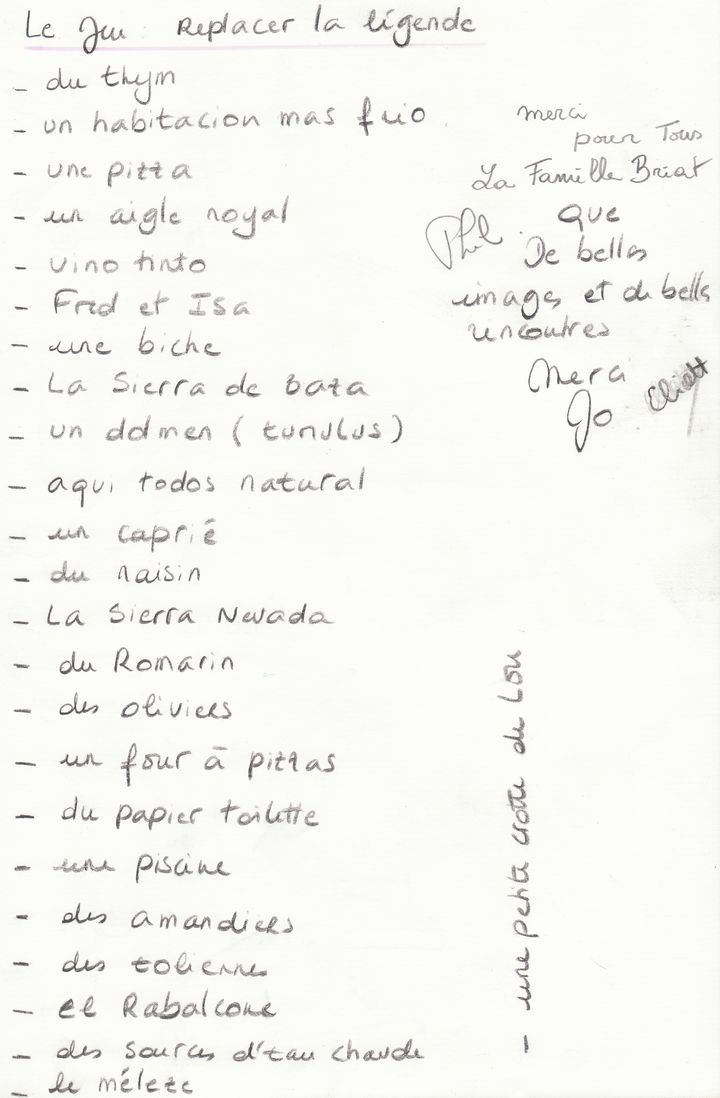 Le Jeu : Replacer la légende
- du thym
- un habitacion mas frio
- une pizza
- un aigle royal
- vino tinto
- Fred et Isa
- une biche
- La Sierra de baza
- un dolmen (tumulus)
- aqui todos natural
- un caprié
- du raisin
- La Sierra Nevada
- du Romarin
- des oliviers
- un four à pizzas
- du papier toilette
- une piscine
- des amandiers
- des eoliennes
- el Rabalcone
- des sources d'eau chaude
- le mélèze
merci
pour Tous
La Famille Briat
Phil
que
De belles
images et de bells
rencontres
Merci
Jo
Eliott
- une petite crotte de Lou